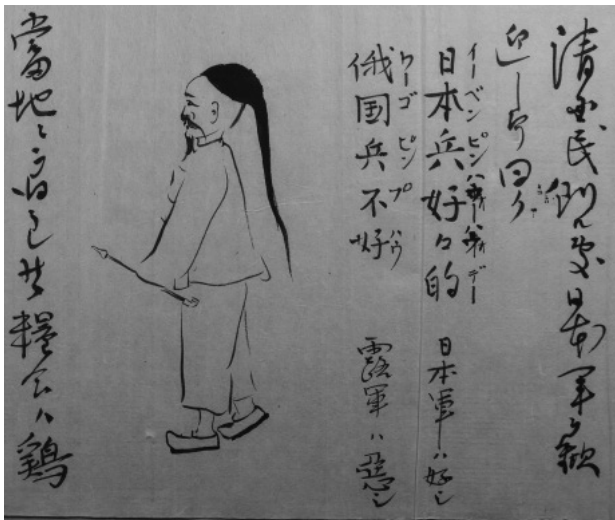 清国民到ル處日本軍ヲ歓
迎シテ曰ク
イーベンピン デー
日本兵好々的 日本軍ハ好シ
ヲーゴピンプハウ
俄国兵不好 露軍ハ悪シ
當地ニ 糧食ハ鶏